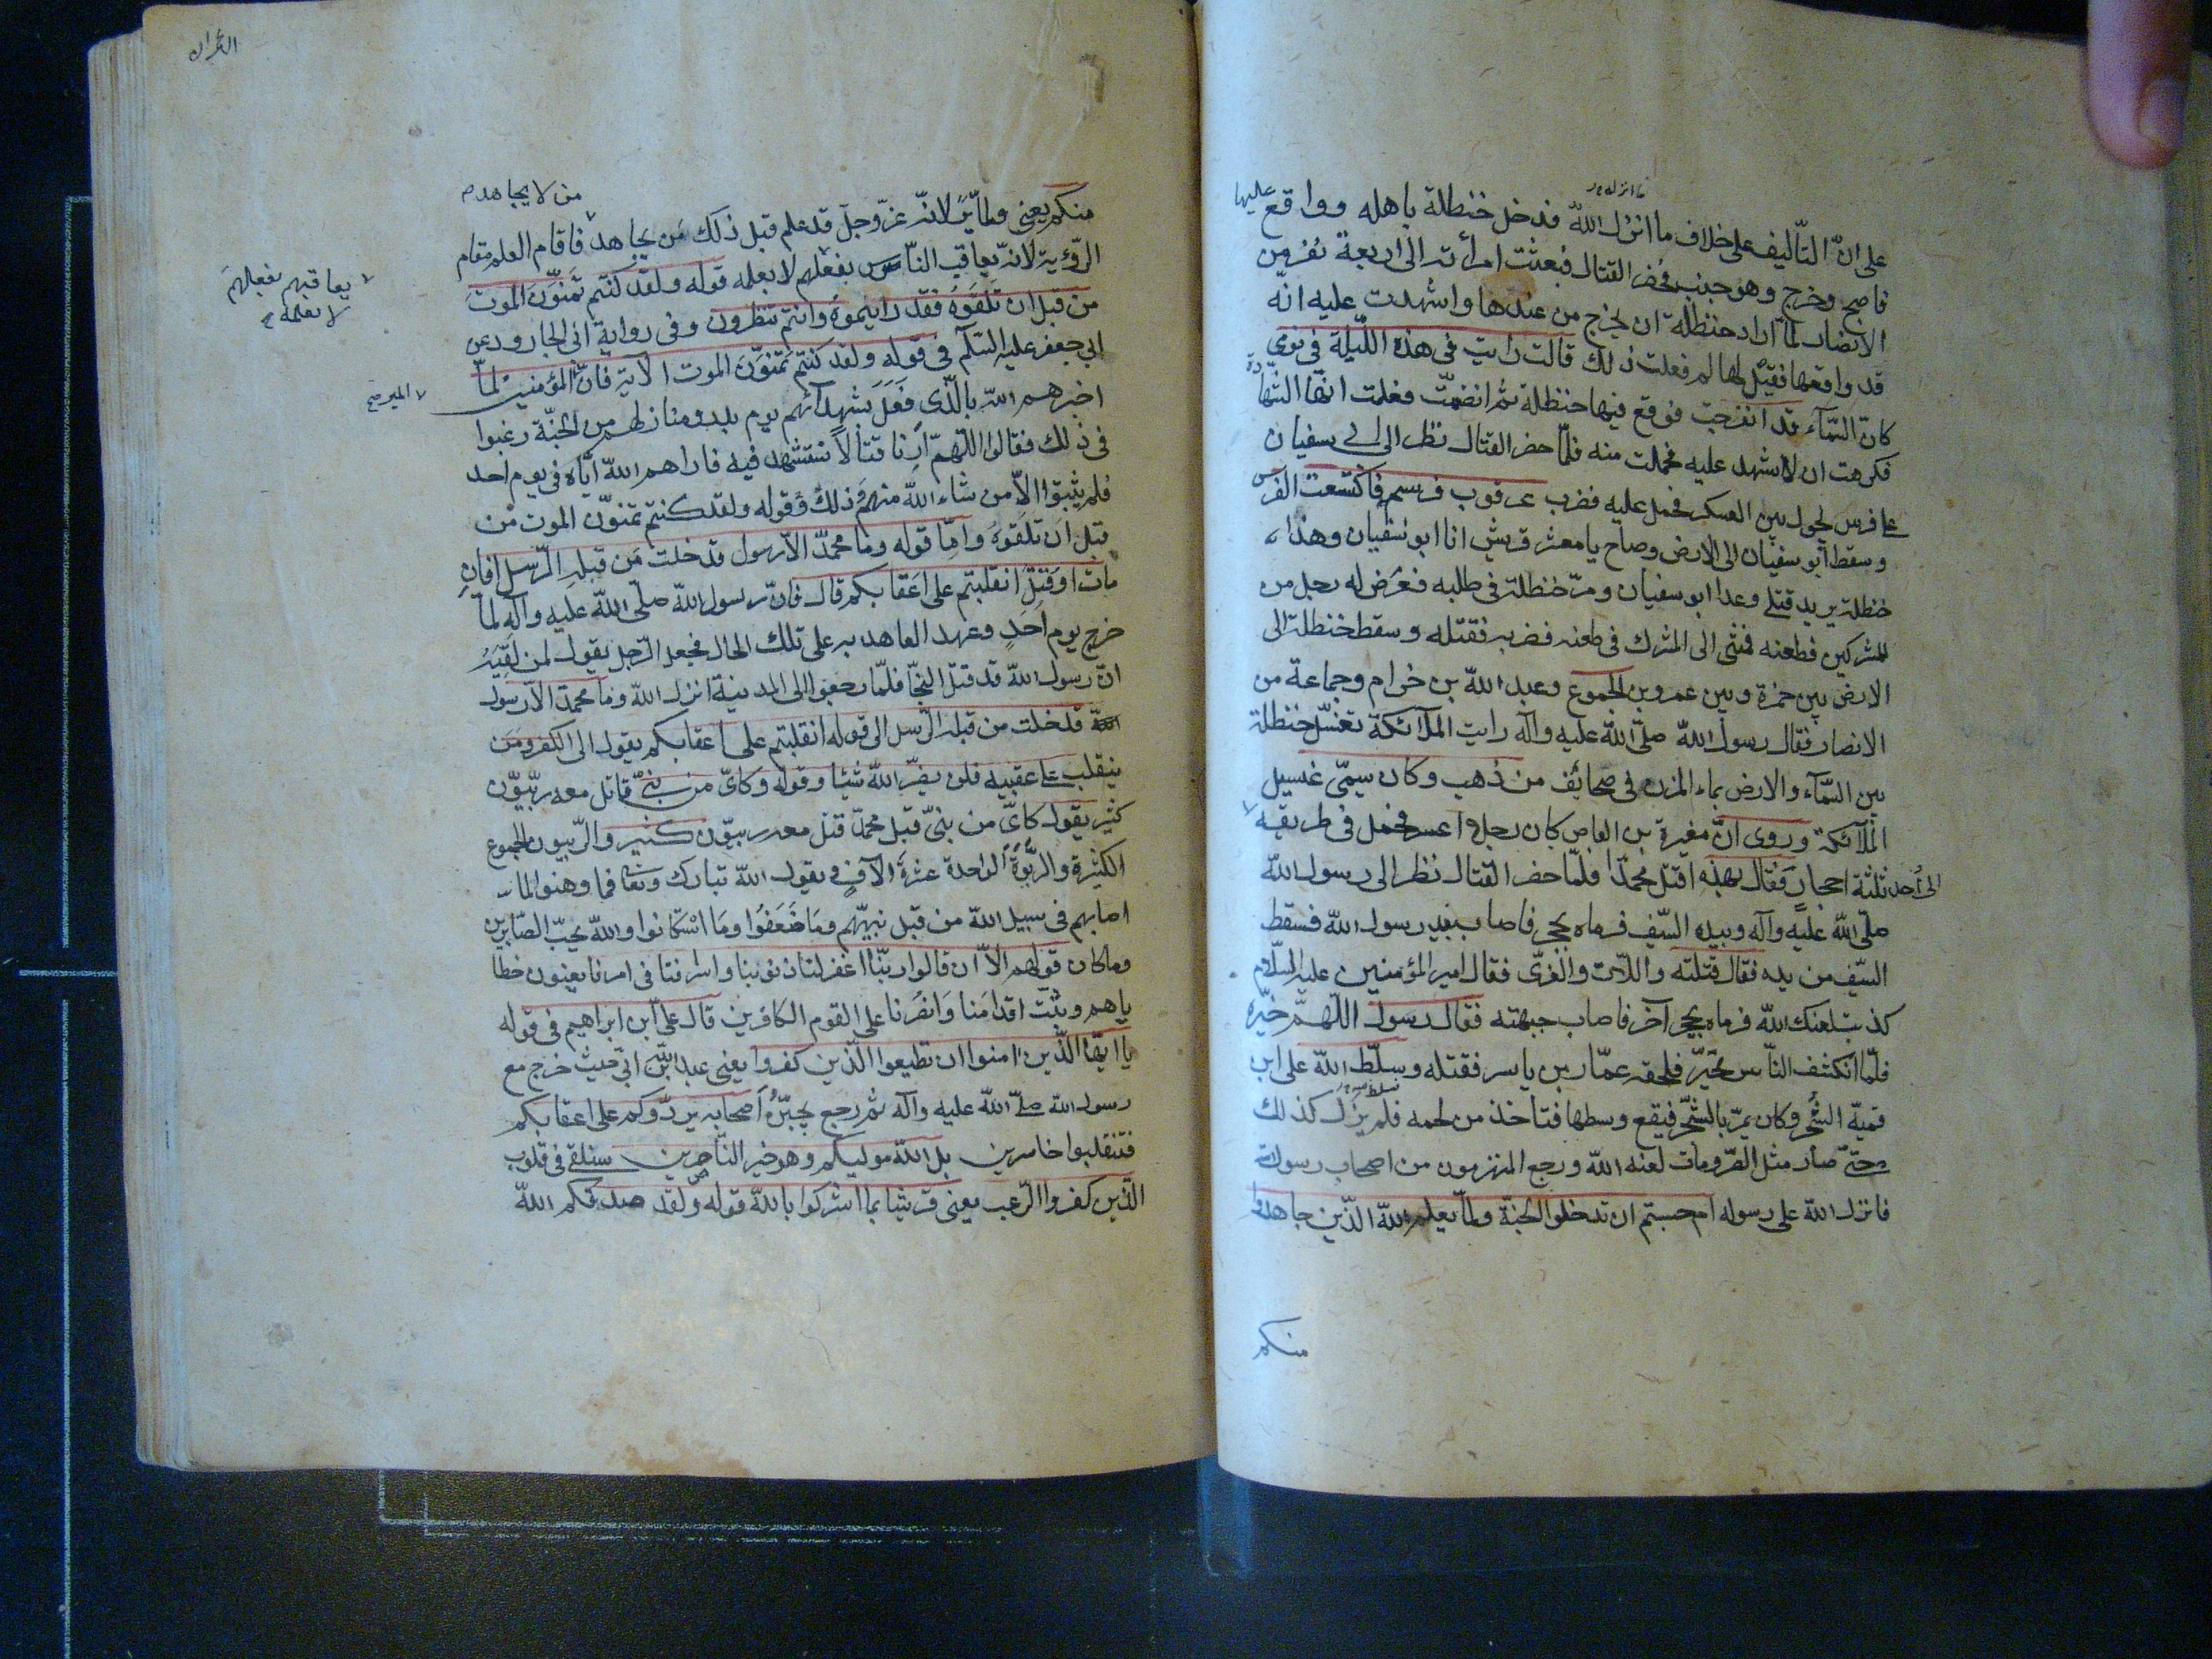 ما انزله
على انّ التّاليف على خلاف ما انزل اللّه فدخل حنظلة باهله وواقع عليها
فاصبح وخرج وهو جنب فحضر القتال فبعثت امرأته الى اربعة نفر من
الانصار لمّا اراد حنظلة ان يخرج من عندها واشهدت عليه انّه
قد واقعها فقيل لها لم فعلت ذلك قالت رايت في هذه اللّيلة في نومي
كانّ السّمآء قد انفرجت فوقع فيها حنظلة ثم انضمّت فعلمت انّها الشّهادة
فكرهت ان لا اشهد عليه فحملت منه فلمّا حضر القتال نظر الى ابي سفيان
على فرس يجول بين العسكر فحمل عليه فضرب عرقوب فرسه فاكتسعت الفرس
وسقط ابو سفيان الى الارض وصاح يا معشر قريش انا ابو سفيان وهذا
حنظلة يريد قتلي وعدا ابو سفيان ومرّ حنظلة في طلبه فعرض له رجل من
المشركين فطعنه فمشى الى المشرك في طعنه فضربه فقتله وسقط حنظلة الى
الارض بين حمزة وبين عمرو بن الجموع وعبد اللّه بن حزام وجماعة من
الانصار فقال رسول اللّه صلّى اللّه عليه وآله رايت الملآئكة تغسّل حنظلة
بين السّمآء والارض بماء المزن في صحائف من ذهب وكان يسمّى غسيل
الملآئكة وروى انّ مغيرة بن العاص كان رجلا اعسر فحمل في طريقه
الى اُحد ثلثة احجار فقال بهذه اقتل محمّدا فلمّا حضر القتال نظر الى رسول اللّه
صلّى اللّه عليه وآله وبيده السّيف فرماه بحجر فاصاب به يد رسول اللّه فسقط
السّيف من يده فقال قتلته واللّات والعزّى فقال امير المؤمنين عليه السّلام
كذب لعنك اللّه فرماه بحجر آخر فاصاب جبهته فقال رسول اللّهمّ حيّره
فلمّا انكشف النّاس تحيّر فلحقه عمّار بن ياسر فقتله وسلّط اللّه على ابن
قميّة الشّجر وكان يمرّ بالشّجر فيقع وسطها فتاخذ من لحمه فلم يزل كذلك
حتّى صار مثل الصّر ومات لعنه اللّه ورجع المنهزمون من اصحاب رسول اللّه
فانزل اللّه على رسوله ام حسبتم ان تدخلوا الجنّة ولمّا يعلم اللّه الّذين جاهدوا
منكم
ال عمران
من لا يجاهد
منكم يعنى ولمّا يَرَ لانّه عزّ وجلّ قد علم قبل ذلك مَن يجاهد فاقام العلم مقام
الرّؤية لانّه يعاقب النّاس بفعلهم لا بعلمه قوله ولقد كنتم تمنّون الموت
يعاقبهم بفعلهم
لا بعلمه
من قبل ان تلقوه فقد رايتموه وانتم تنظرون وفي رواية ابي الجارود عن
ابي جعفر عليه السّلم في قوله ولقد كنتم تمنّون الموت الآية فانّ المؤمنين لمّا
اخبرهم اللّه بالّذي فعل بشهدآئهم يوم بدر ومنازلهم من الجنّة رغبوا
في ذلك فقالوا اللّهمّ ارنا قتالاً نستشهد فيه فاراهم اللّه ايّاه في يوم احد
فلم يثبتوا الّا من شاء اللّه منهم فذلك قوله ولقد كنتم تمنّون الموت من
قبل ان تلقوه وامّا قوله وما محمّد الّا رسول قد خلت من قبله الرّسل افان
مات او قتل انقلبتم على اعقابكم قال فانّ رسول اللّه صلّى اللّه عليه وآله لمّا
خرج يوم اُحد وعهد العاهد به على تلك الحال فجعل الرّجل يقول لمن لقيه
انّ رسول اللّه قد قتل النّجا فلمّا رجعوا الى المدينة انزل اللّه وما محمّد الّا رسول
قد خلت من قبله الرّسل الى قوله انقلبتم على اعقابكم يقول الى الكفر ومن
ينقلب على عقبيه فلن يضرّ اللّه شيئا وقوله وكايّ من نبيّ قاتل معه ربّيّون
كثير يقول كايّ من نبيّ قبل محمّد قتل معه ربيّون كثير والرّبيّون الجموع
الكثيرة والرّبّوة الواحدة عشرة الآف و يقول اللّه تبارك وتعالى فما وهنوا لما
اصابهم في سبيل اللّه من قبل نبيّهم وما ضعفوا وما استكانوا واللّه يحبّ الصّابرين
وما كان قولهم الّا ان قالوا ربّنا اغفر لنا ذنوبنا واسرافنا في امرنا يعنون خطا
ياهم وثبّت اقدامنا وانصرنا على القوم الكافرين قال علىّ ابن ابراهيم في قوله
يا ايّها الّذين امنوا ان تطيعوا الّذين كفروا يعنى عبد اللّه بن ابيّ حيث خرج مع
رسول اللّه صلّى اللّه عليه وآله ثم رجع يجبّن اصحابه يردّوكم على اعقابكم
فتنقلبوا خاسرين بل اللّه موليكم وهو خير النّاصرين سنلقي في قلوب
الّذين كفروا الرّعب يعنى قريشا بما اشركوا باللّه قوله ولقد صدقكم اللّه